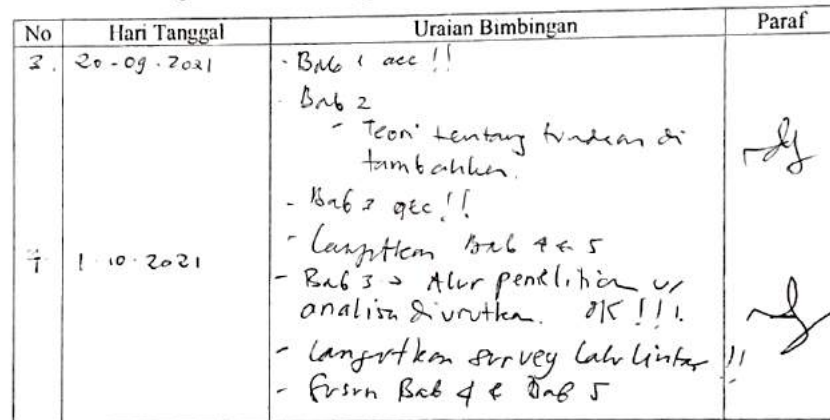 No Hari Tanggal Uraian Bimbingan Paraf
3. 20-09-2021 - Bab 1 acc !!
- Bab 2
- Teori tentang tundaan di
tambahkan.
- Bab 2 acc !!
- Lanjutkan Bab 4 & 5
4 1-10-2021
- Bab 3 → Alur penelitian u/
analisa diurutkan. OK !!!
- Lanjutkan survey lalu lintas !!
- Susun Bab 4 & Bab 5